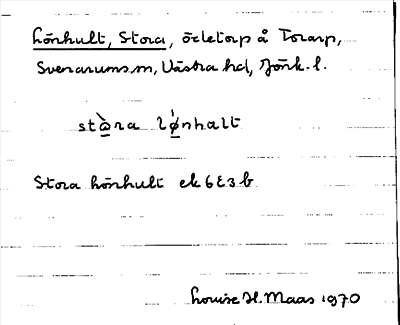 Lönhult, Stora, ödetorp å Torarp,
Svenarums sn, Västra hd, Jönk. l.
stò̱ra lǿ̱nhalt
Stora Lönhult ek 6E3b
Louise H. Maas 1970